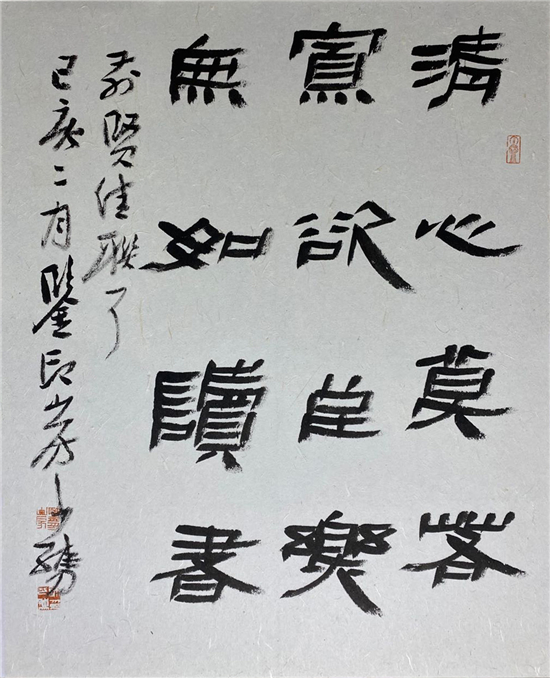 清心莫若
寡欲至樂
無如讀書
前賢佳聯
己亥二月鑒印山房